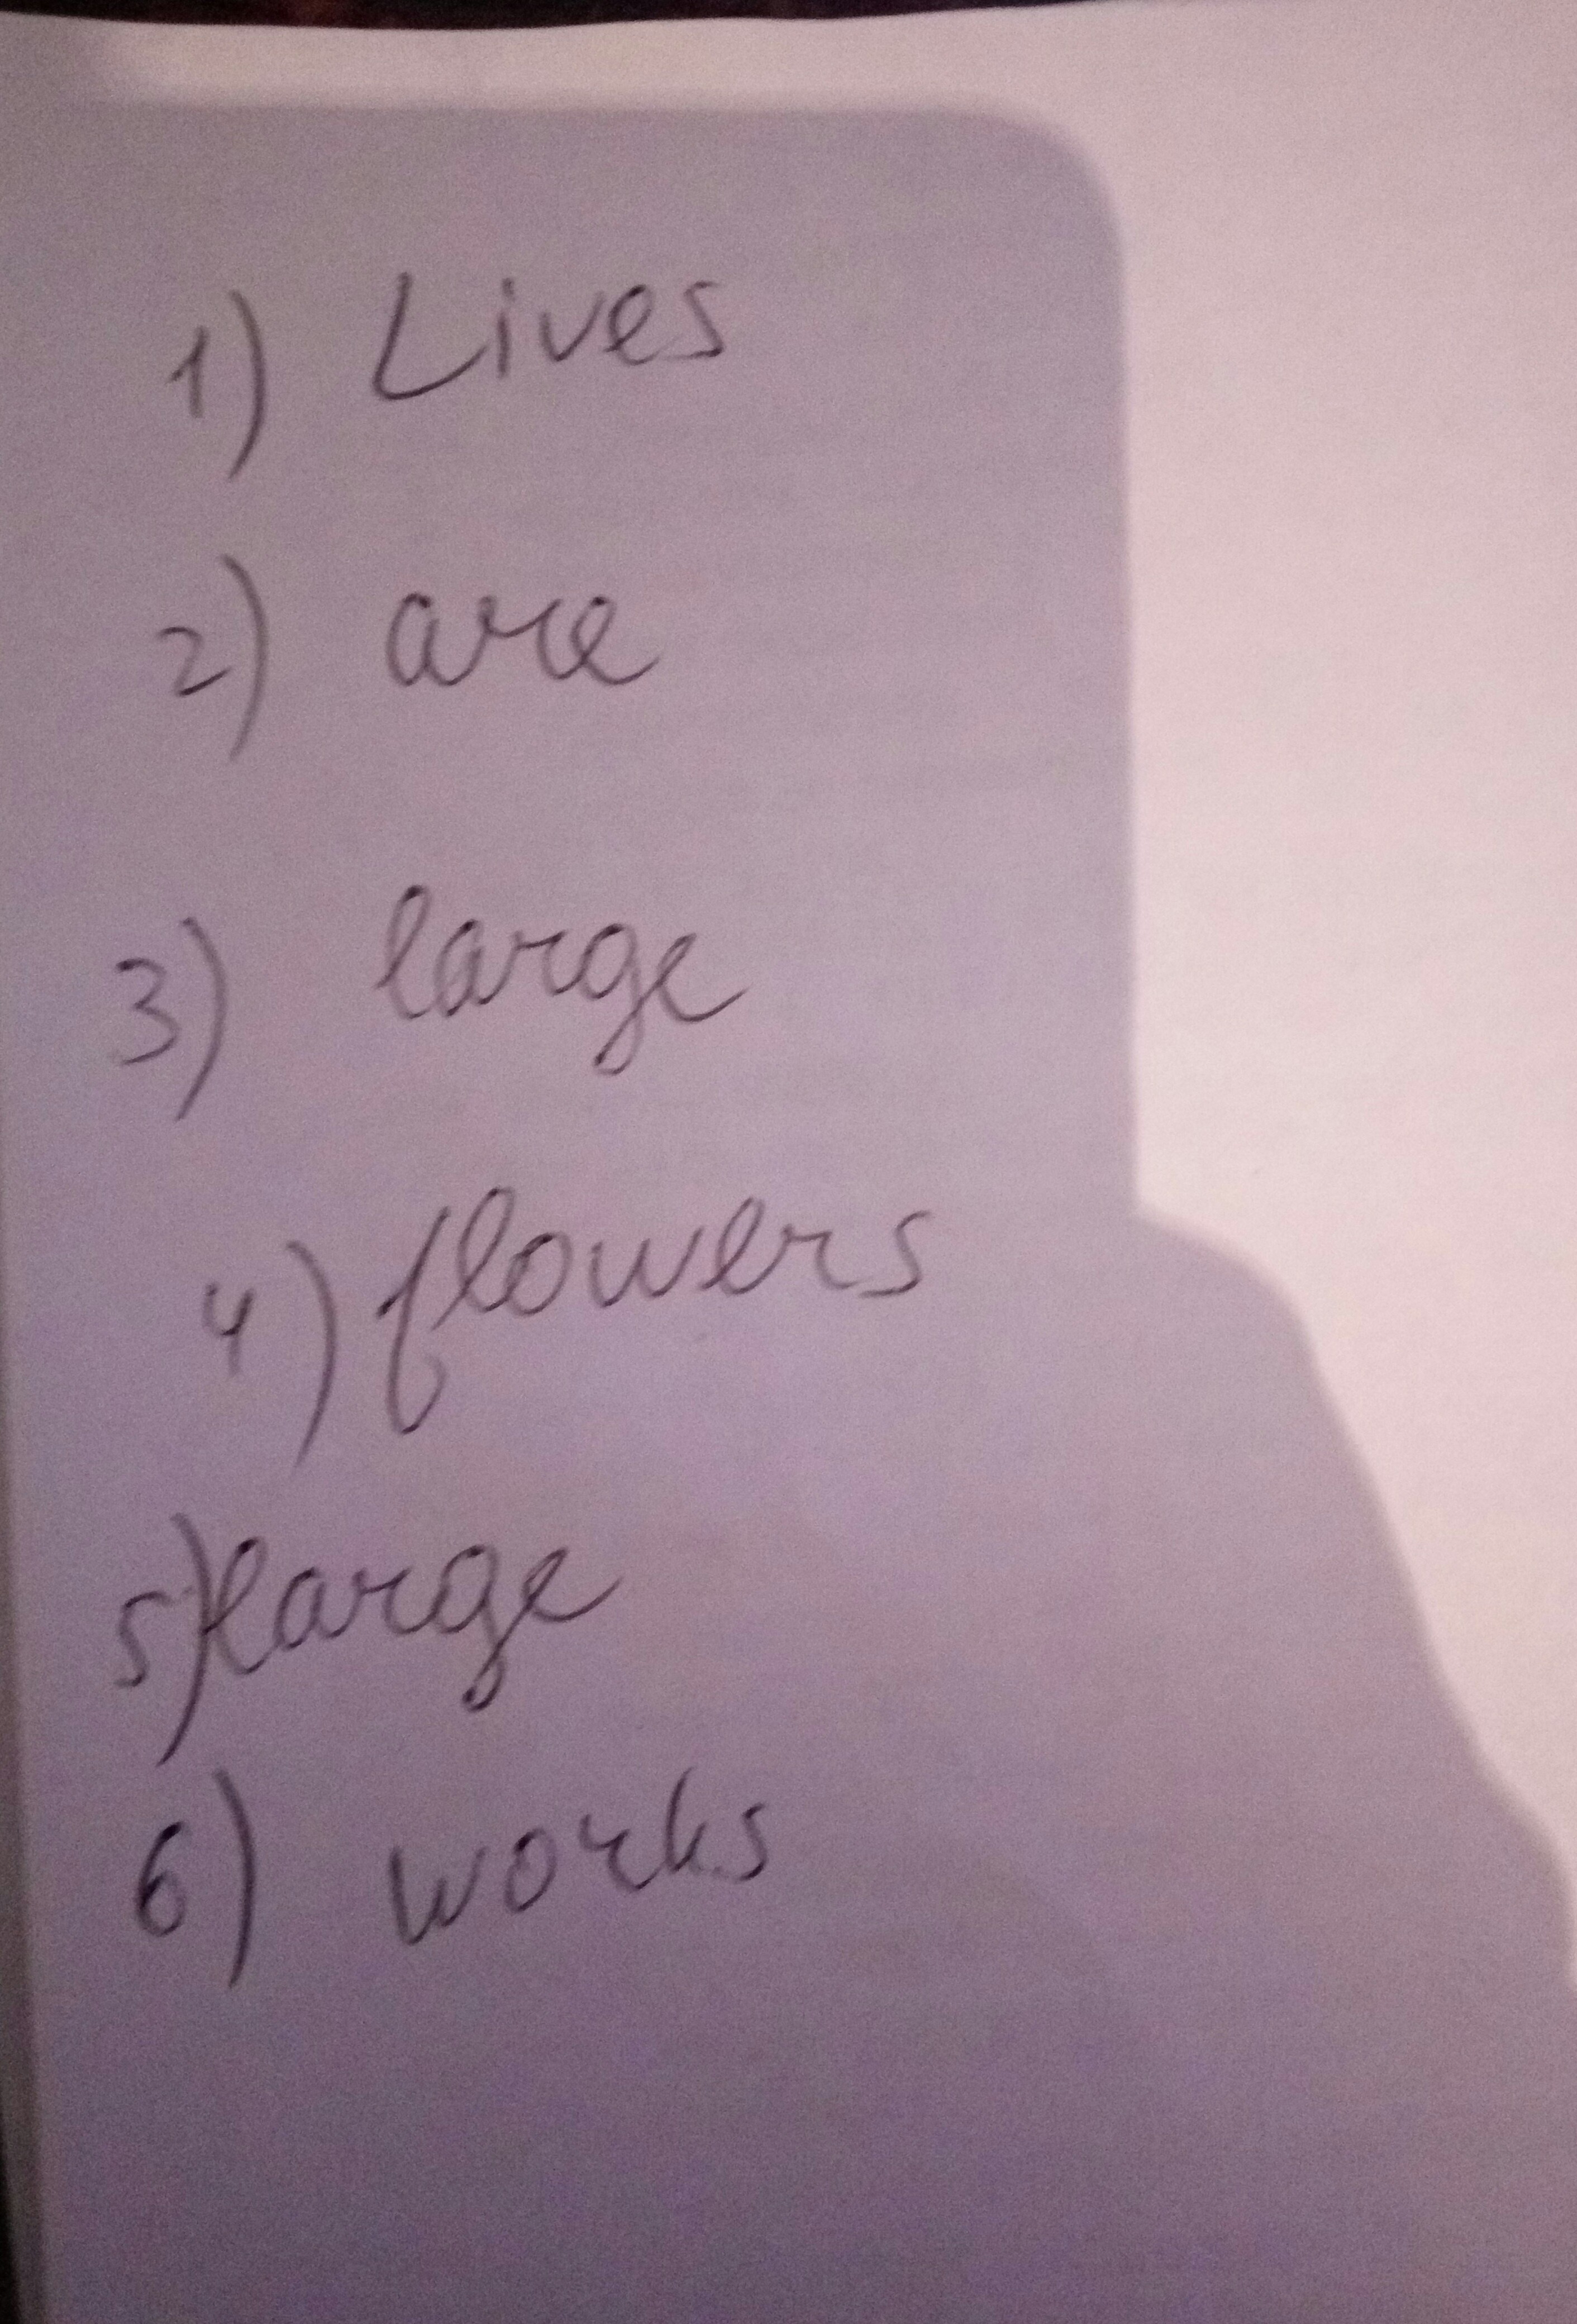 1) Lives
2) are
3) large
4) flowers
5) large
6) works